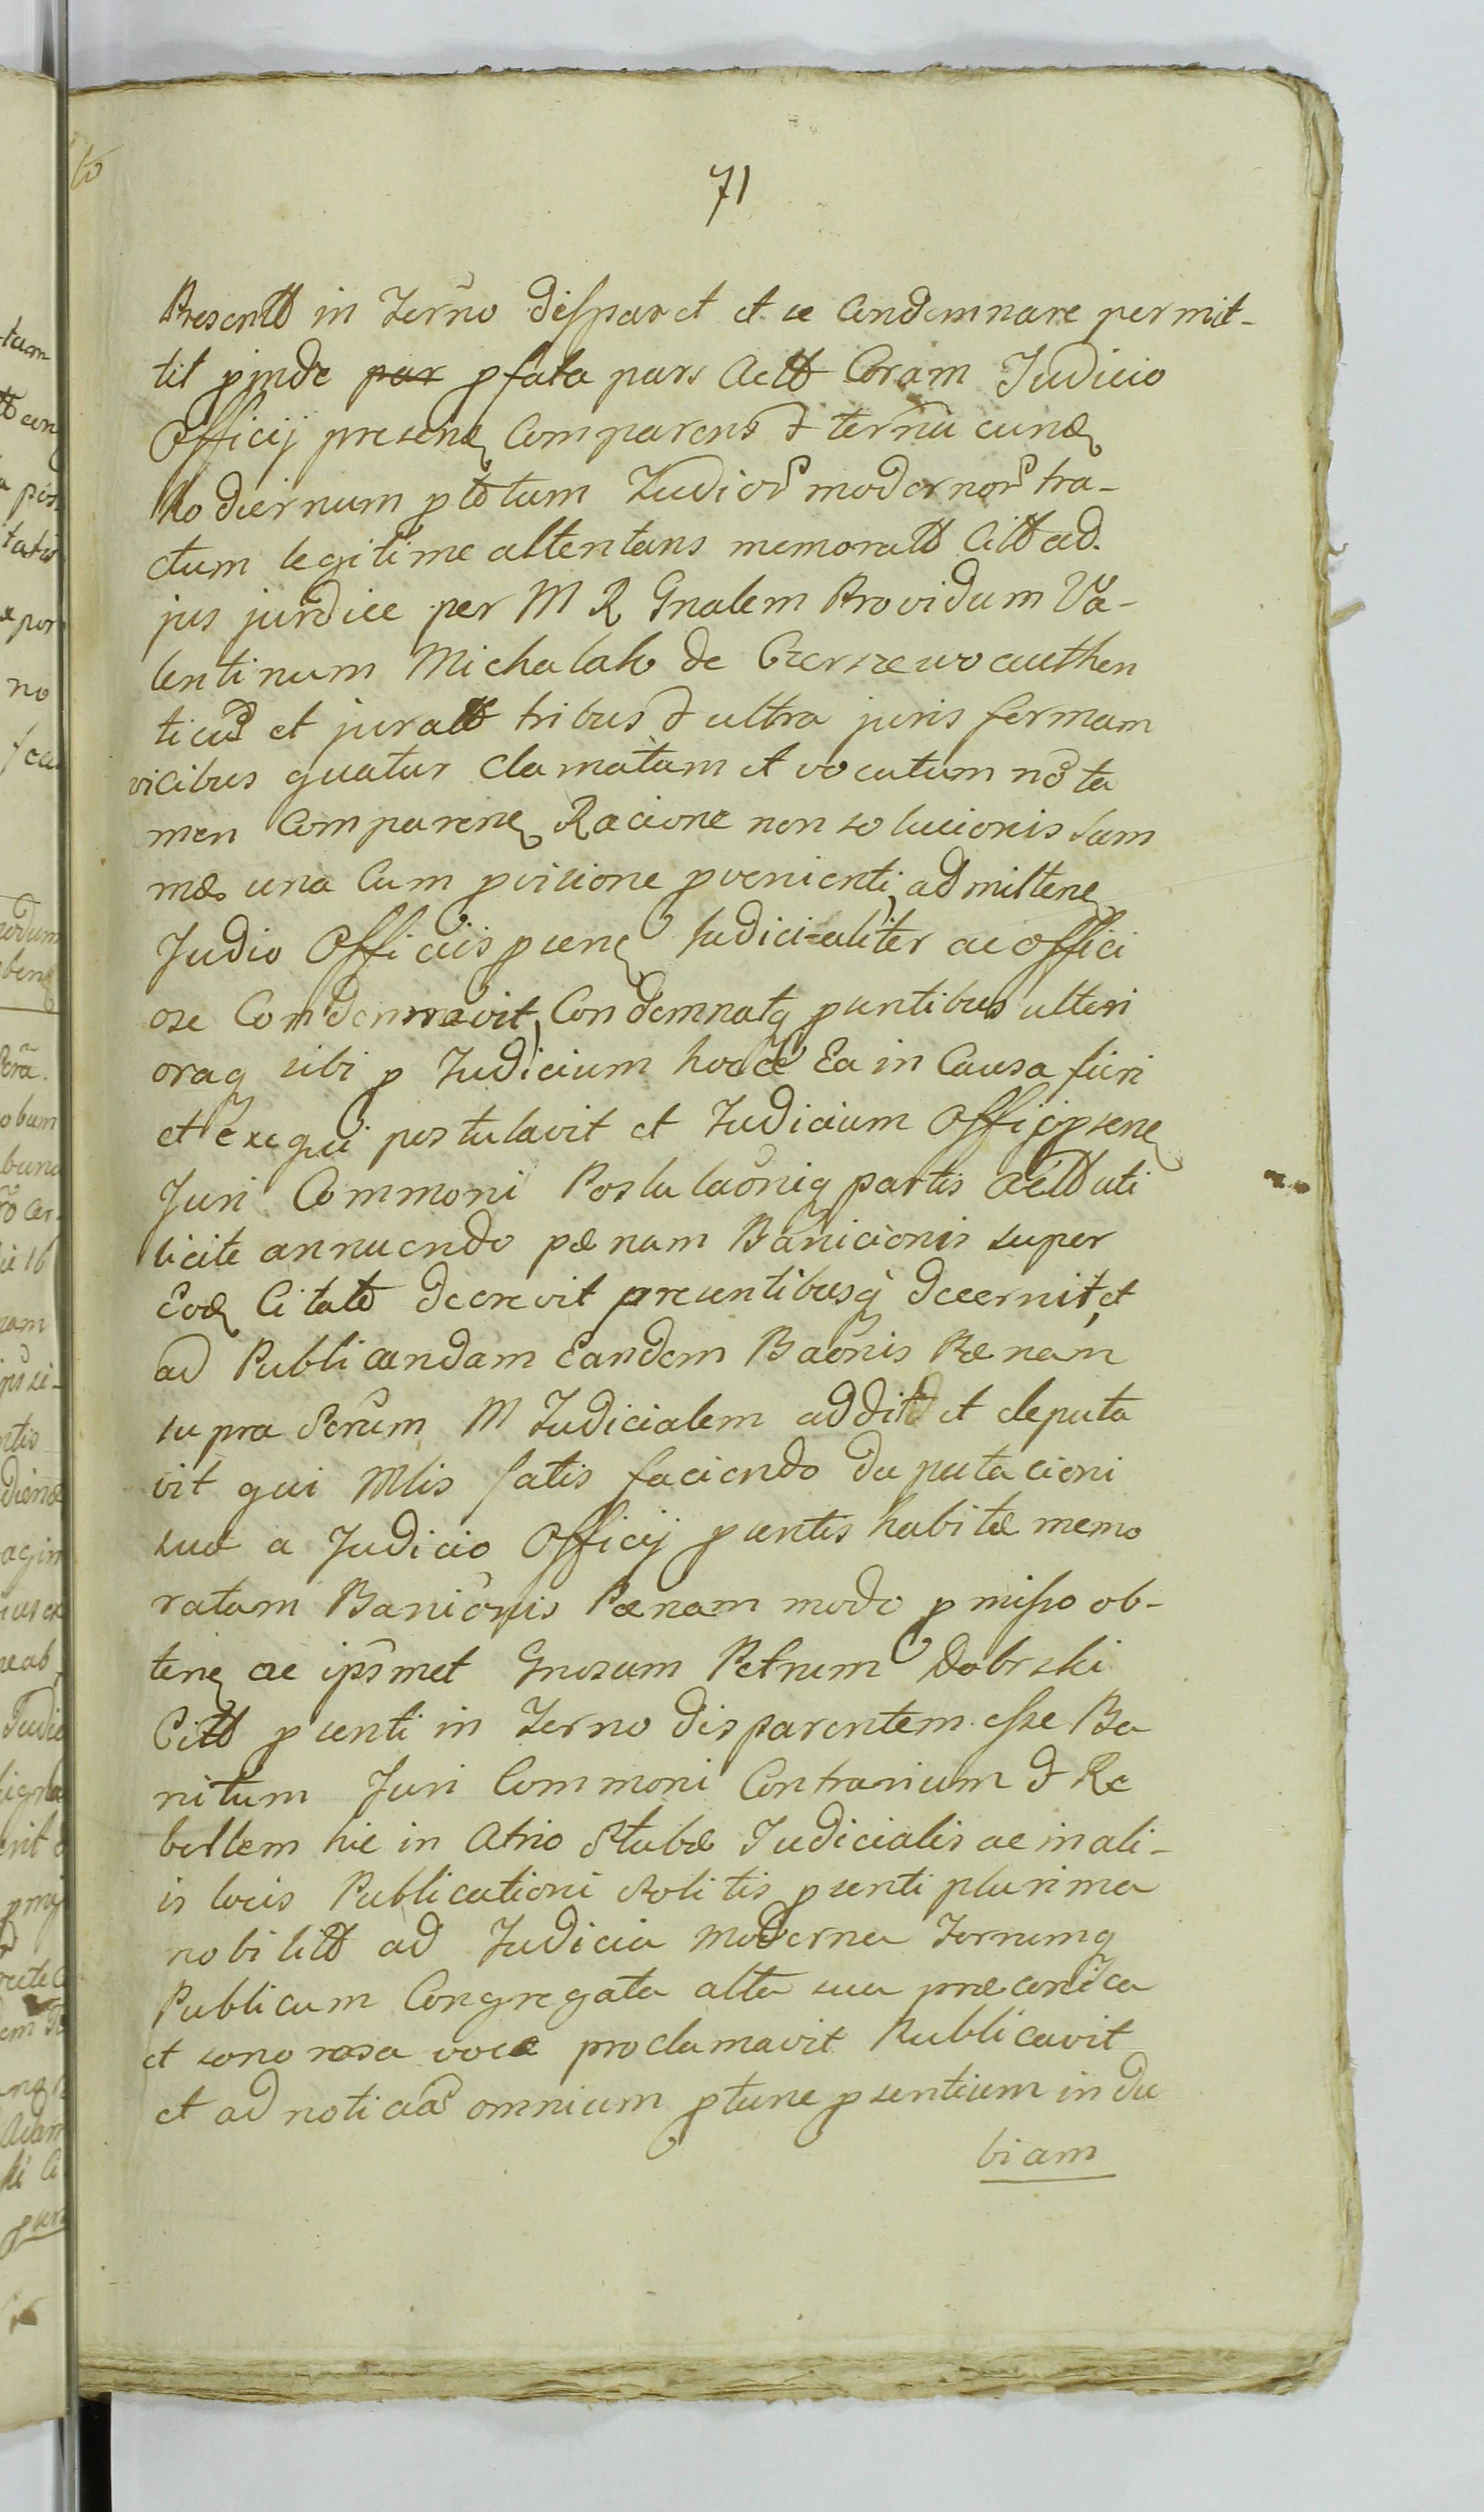 71
Presentt in Terno disparet et se Condemnare permit-
tit pinde par pfata pars Actt Coram Judicio
Officij presene Comparens & ternu eund
hodiernum ptotum Judior modernor tra-
ctum legitime attentans memoratt Citt ad
jus juridice per M R Gnalem Providum Va-
lentinum Michalak de Czerszewo authen
ticu et juratt tribus & ultra juris formam
vicibus quatur clamatam et vocatum no ta
men Comparene Racione non solucionis sum
mæ una Cum pvisione pvenienti, admittene
Judio Officiis psene Judicialiter ac offici
ose Condemnavit, Condemnatq psentibus ulteri
oraq sibi p Judicium hocce Ea in Causa fieri
et exequi postulavit et Judicium Officij psene
Juri Commoni Postulaoniq partis Actt uti
licite annuendo pænam Banicionis super
Eod Citato decrevit presentibusq decernit, et
ad Publicandam Eandem Baonis Pænam
supra Scrum M Judicialem addit et deputa
vit qui Mlis satis faciendo deputacioni
suæ a Judicio Officij psentis habitæ memo
ratam Banionis Pænam modo pmisso ob-
tene ac ipsmet Gnosum Petrum Dobrski
Citt psenti in Terno disparentem esse Ba
nitum Juri Commoni Contrarium & Re
bellem hic in Atrio Stubæ Judicialis ac in ali-
is locis Publicationi Solitis psenti plurima
nobilitt ad Judicia moderna Ternumq
Publicum Congregata alta sua præconica
et sonorosa voce proclamavit Publicavit
et ad noticia omnium ptunc psentium indu
biam